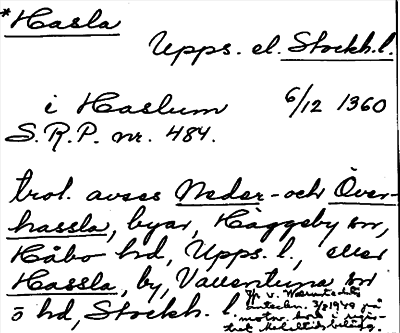 *Hasla
Upps. el. Stockh. l.
i Haslum 6/12 1360
S.R.P. nr. 484.
trol. avses Neder- och Över-
hassla, byar, Häggeby sn,
Håbo hd, Upps. l., eller
Hassla, by, Vallentuna sn
o hd, Stockh. l.
v. 3/2 1949 på